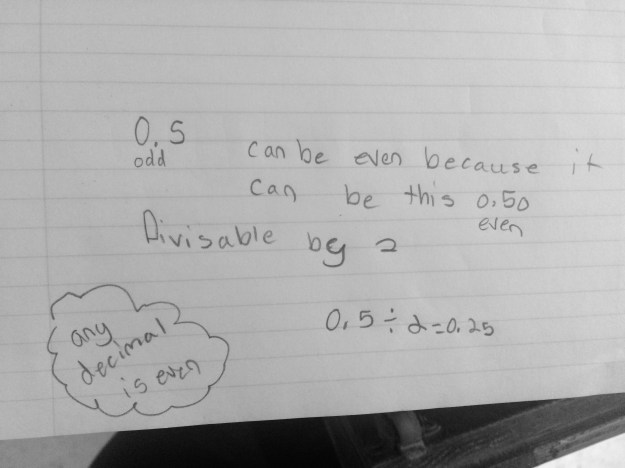 0.5 can be even because it
odd
can be this 0.50
even
Divisable by 2
0.5 ÷ 2 = 0.25
any
decimal
is even